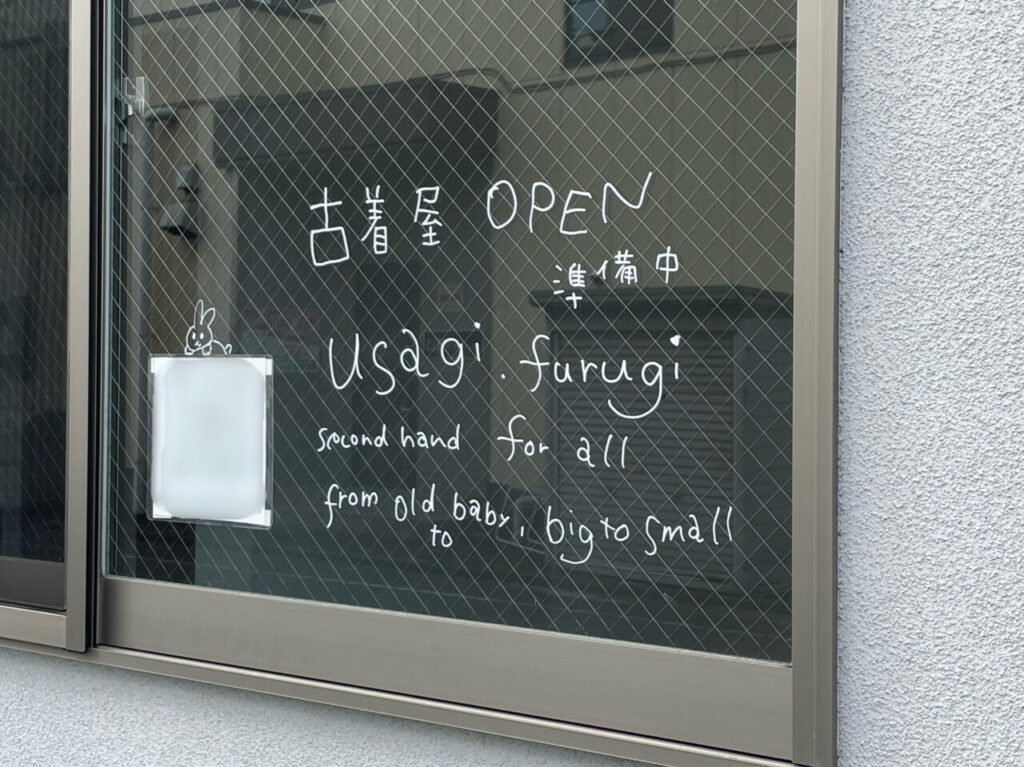 古着屋 OPEN
準備中
usagi.furugi
second hand for all
from old baby, big to small
to